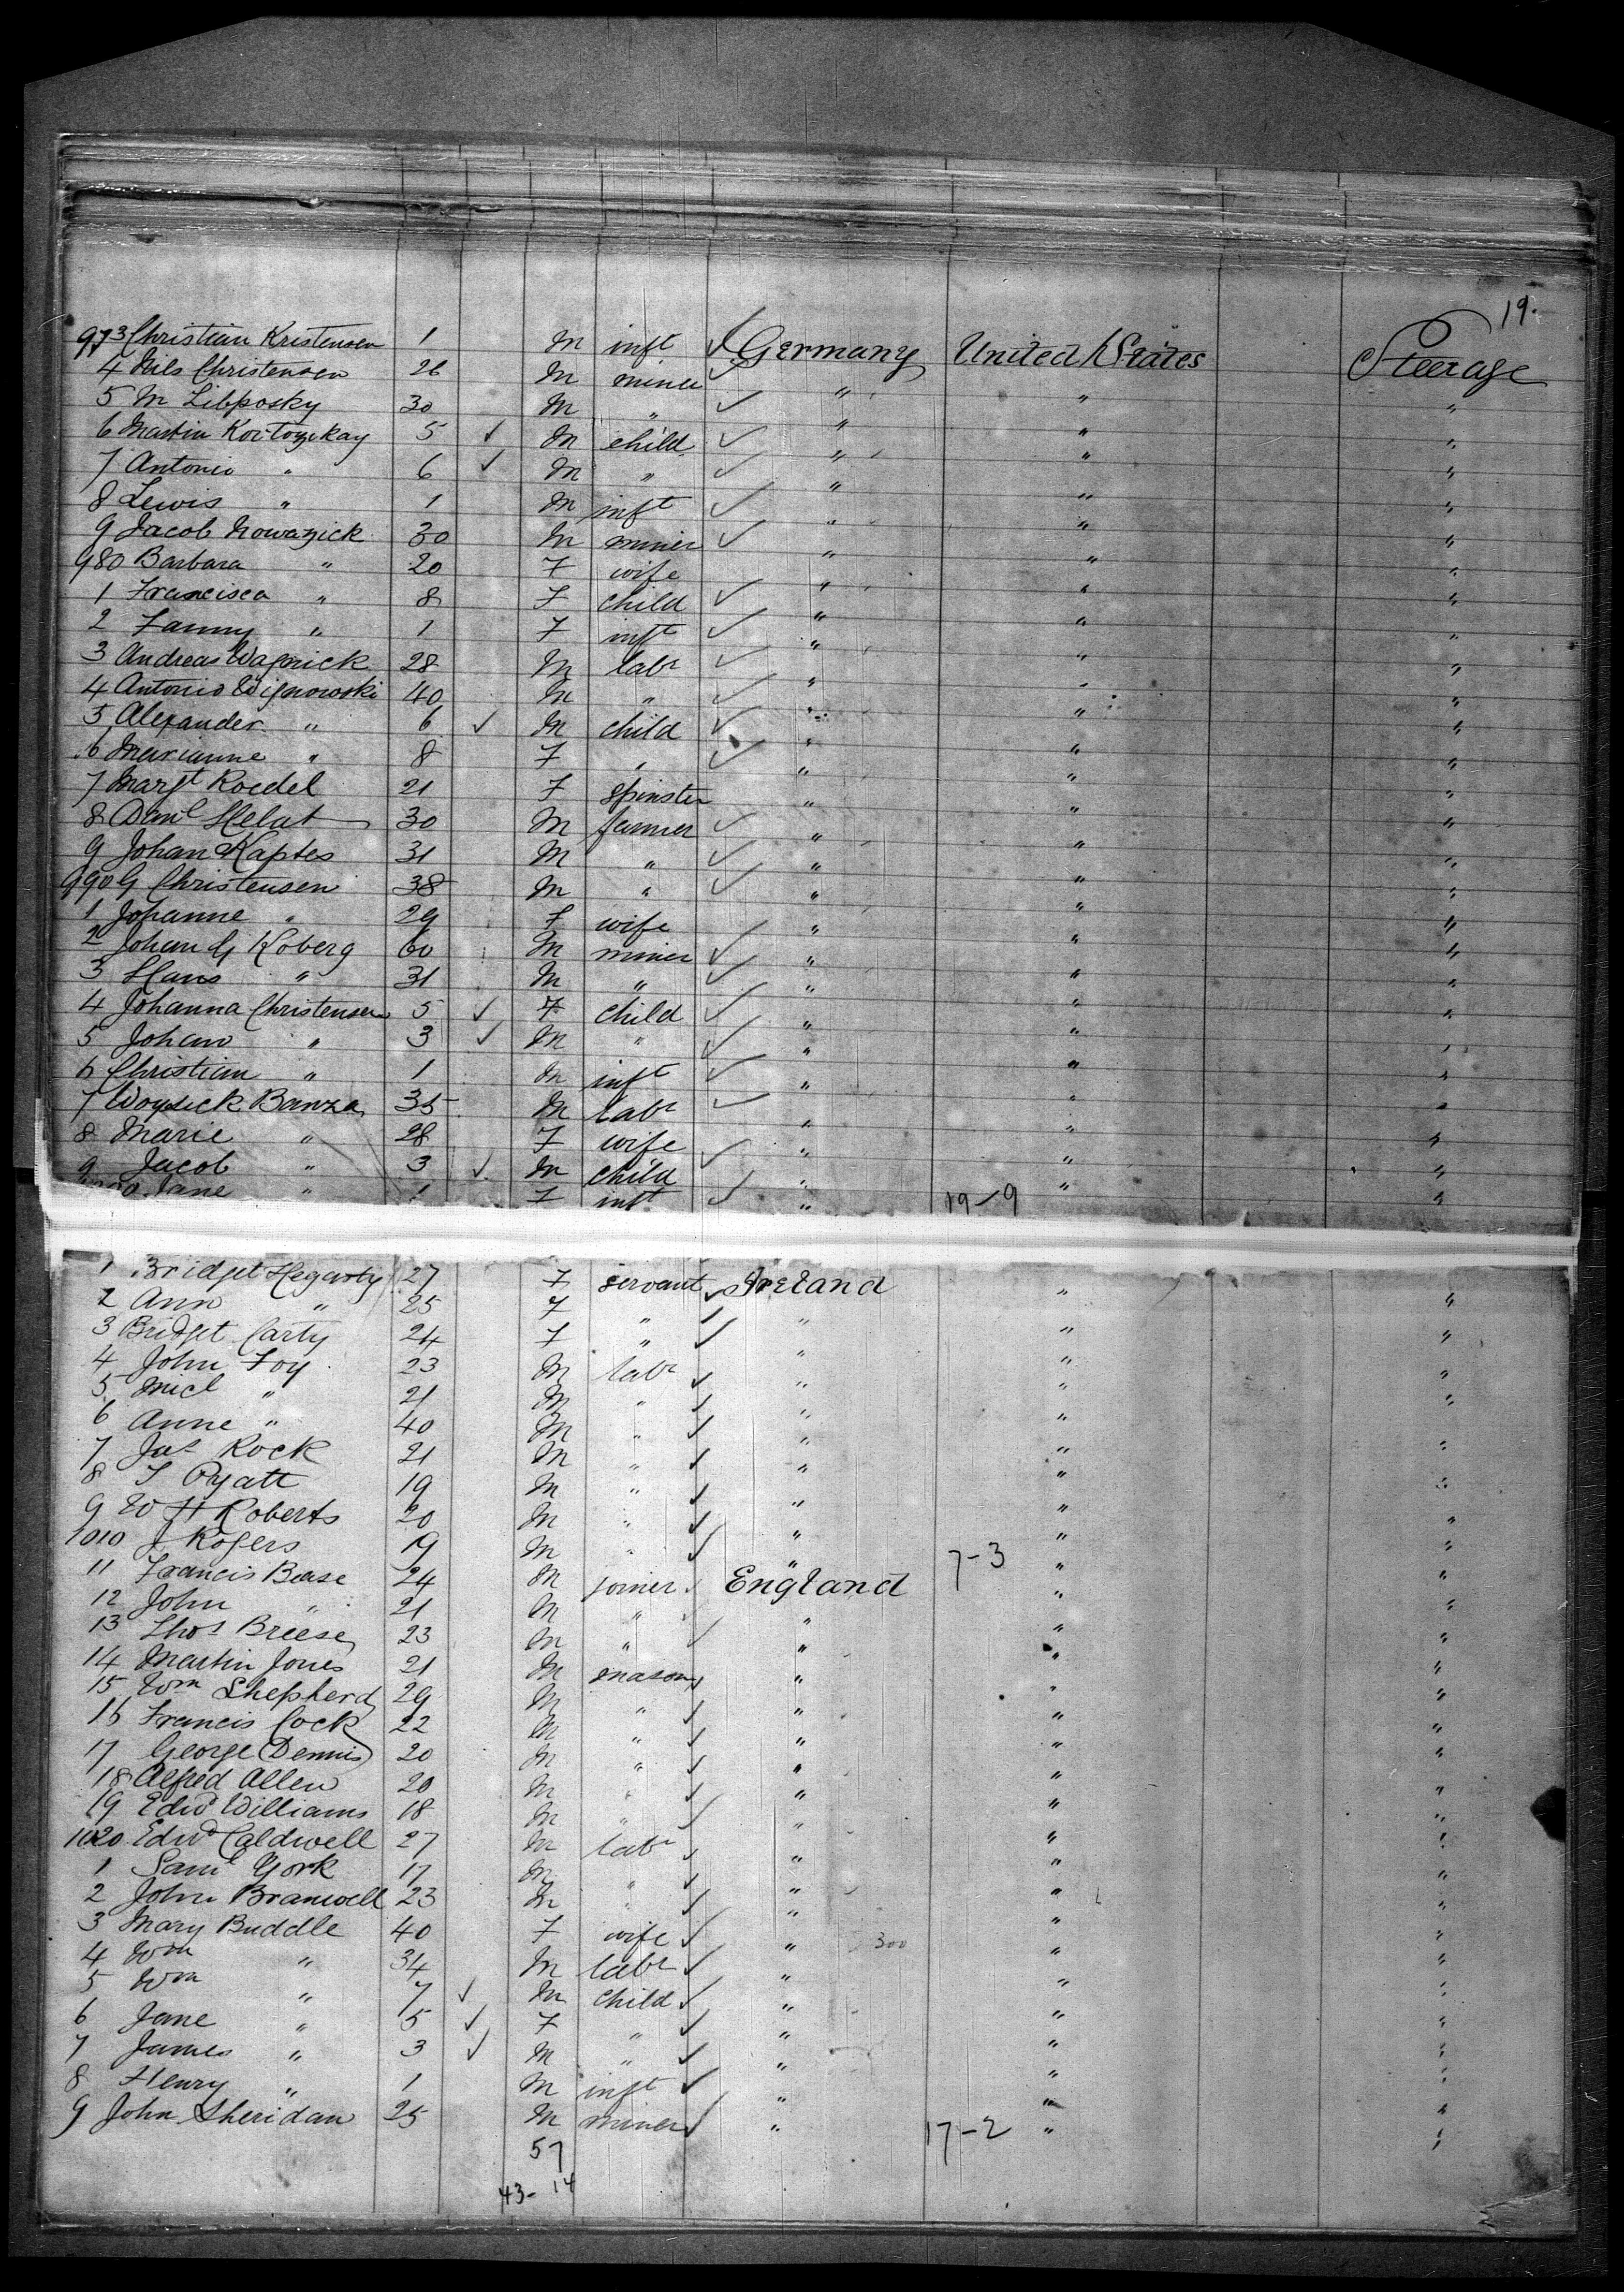 19.
973 Christian Kristensen 1 M inft ✓ Germany United States Steerage
4 Nils Christensen 26 M miner ✓ " " "
5 M Libposky 30 M " ✓ " " "
6 Martin 5 ✓ M child ✓ " " "
7 Antonio " 6 ✓ M " ✓ " " "
8 Lewis " 1 M inft ✓ " " "
9 Jacob Nowazick 30 M miner ✓ " " "
980 Barbara " 20 F wife " " "
1 Francisca " 8 F child ✓ " " "
2 Fanny " 1 F inft ✓ " " "
3 Andreas Wagnick 28 M labr ✓ " " "
4 Antonio 40 M " ✓ " " "
5 Alexander " 6 ✓ M child ✓ " " "
6 Marianne " 8 F " ✓ " " "
7 Margt Roedel 21 F spinster " " "
8 Danl Helat 30 M farmer ✓ " " "
9 Johan Kaptes 31 M " ✓ " " "
990 G Christensen 38 M " ✓ " " "
1 Johanne " 29 F wife " " "
2 Johan G Koberg 60 M miner ✓ " " "
3 Hans " 31 M " ✓ " " "
4 Johanna Christensen 5 ✓ F child ✓ " " "
5 Johan " 3 ✓ M " ✓ " " "
6 Christian " 1 M inft ✓ " " "
7 Woysick Banza 35 M labr ✓ " " "
8 Marie " 28 F wife " " "
9 Jacob " 3 ✓ M child ✓ " " "
Jane " 1 F inft ✓ " 19-9 "
1 Bridget Hegarty 27 F servant ✓ Ireland " "
2 Ann " 25 F " ✓ " " "
3 Bridget Carty 24 F " ✓ " " "
4 John Foy 23 M labr ✓ " " "
5 Micl " 21 M " ✓ " " "
6 Anne " 40 M " ✓ " " "
7 Jas Rock 21 M " ✓ " " "
8 T Pyatt 19 M " ✓ " " "
9 W H Roberts 20 M " ✓ " " "
1010 J Rogers 19 M " ✓ " 7-3 " "
11 Francis Bease 24 M joiner ✓ England " "
12 John " 21 M " ✓ " " "
13 Thos Breese 23 M " ✓ " " "
14 Martin Jones 21 M mason ✓ " " "
15 Wm Shepherd 29 M " ✓ " " "
16 Francis Cock 22 M " ✓ " " "
17 George Dennis 20 M " ✓ " " "
18 Alfred Allen 20 M " ✓ " " "
19 Edwd Williams 18 M " ✓ " " "
1020 Edwd Caldwell 27 M labr ✓ " " "
1 Saml York 17 M " ✓ " " "
2 John Bramwell 23 M " ✓ " " "
3 Mary Buddle 40 F wife ✓ " 300 " "
4 Wm " 34 M labr ✓ " " "
5 Wm " 7 ✓ M child ✓ " " "
6 Jane " 5 ✓ F " ✓ " " "
7 James " 3 ✓ M " ✓ " " "
8 Henry " 1 M inft ✓ " " "
9 John Sheridan 25 M miner ✓ " 17-2 " "
57
43-14